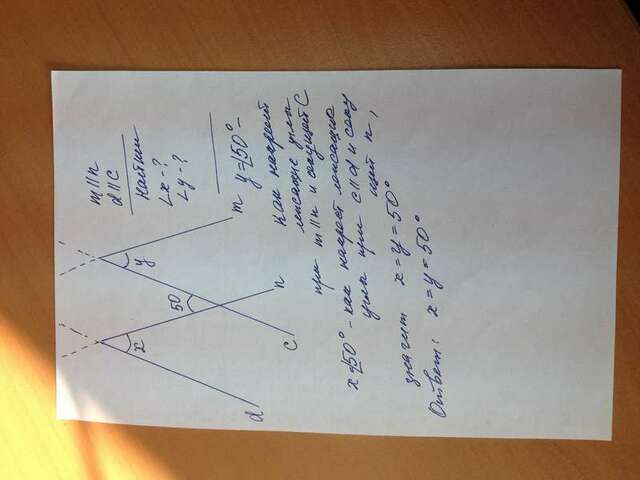 x
50
y
d
c
n
m
m || n
d || c
Найти
∠x - ?
∠y - ?
y = ∠50° -
как накрест
лежащие углы
при m || n и секущей C
x = ∠50° - как накрест лежащие
углы при c || d и секу
щей n,
значит x = y = 50°
Ответ: x = y = 50°